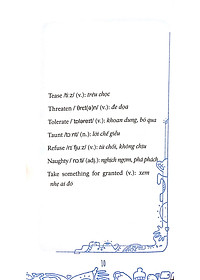 Tease /tiːz/ (v.): trêu chọc
Threaten /ˈθret(ə)n/ (v.): đe dọa
Tolerate /ˈtɒləreɪt/ (v.): khoan dung, bỏ qua
Taunt /tɔːnt/ (n.): lời chế giễu
Refuse /rɪˈfjuːz/ (v.): từ chối, không chịu
Naughty /ˈnɔːti/ (adj.): nghịch ngợm, phá phách
Take something for granted (v.): xem
nhẹ ai đó
10